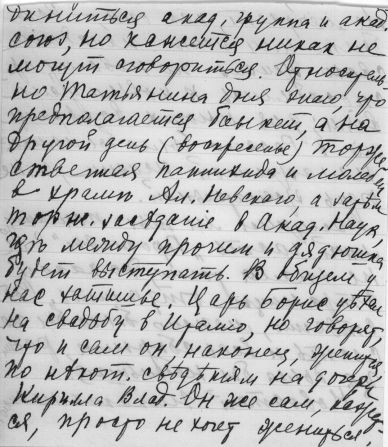 диниться акад. группа и акад.
союз, но кажется никак не
могут сговориться. Относитель-
но Татьянина дня знаю, что
предполагается банкет, а на
другой день (воскресенье) торже-
ственная панихида и молебен
в храмѣ Ал. Невского, а затѣм
торж. засѣданіе в Акад. Наук,
гдѣ между прочим и дядюшка
будет выступать. В общем у
нас затишье. Царь Борис уѣхал
на свадьбу в Италію, но говорят,
что и сам он, наконец, женится
по нѣкот. свѣдѣніям на дочери
Кирилла Влад. Он же сам, кажет-
ся, просто не хочет жениться,